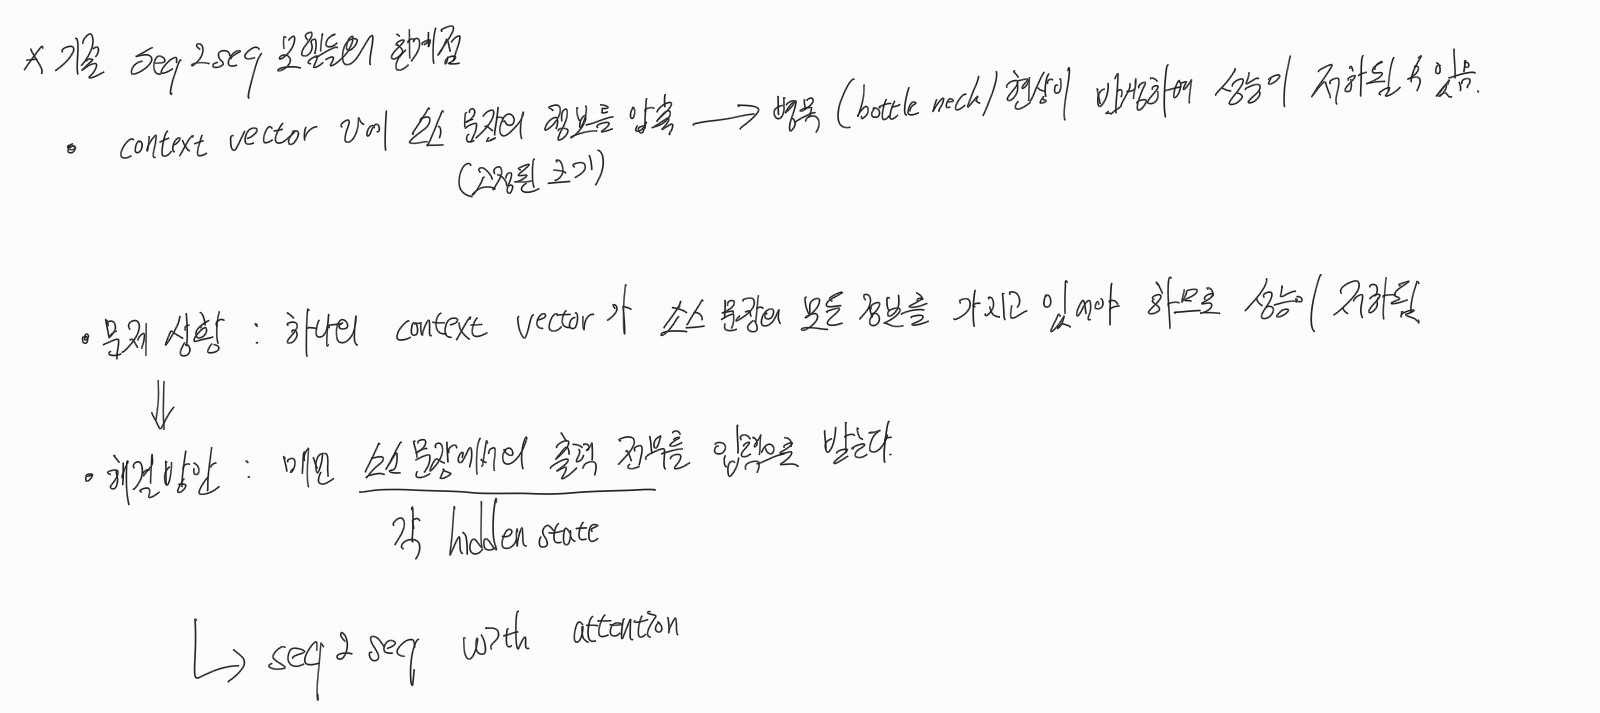 * 기존 seq2seq 모델들의 한계점
• context vector v에 소스 문장의 정보를 압축 → 병목 (bottle neck) 현상이 발생하여 성능이 저하될 수 있음.
(고정된 크기)
• 문제 상황 : 하나의 context vector가 소스 문장의 모든 정보를 가지고 있어야 하므로 성능이 저하됨
⇓
• 해결방안 : 매번 소스 문장에서의 출력 전부를 입력으로 받는다.
각 hidden state
↳ seq2seq with attention